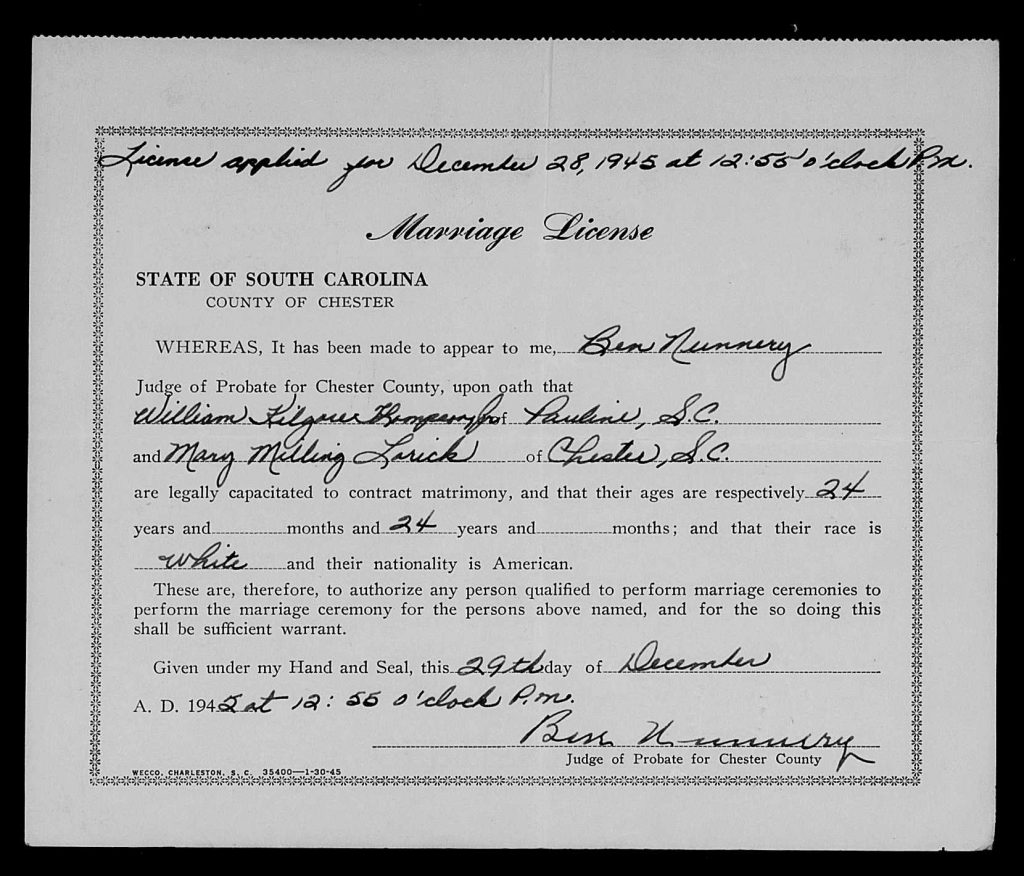 License applied for December 28, 1945 at 12:55 o'clock P.m.
Marriage License
STATE OF SOUTH CAROLINA
COUNTY OF CHESTER
WHEREAS, It has been made to appear to me, Ben Nunnery
Judge of Probate for Chester County, upon oath that
William Kilgore Thompson Jr of Pauline, S.C.
and Mary Milling Lorick of Chester, S.C.
are legally capacitated to contract matrimony, and that their ages are respectively 24
years and months and 24 years and months; and that their race is
White and their nationality is American.
These are, therefore, to authorize any person qualified to perform marriage ceremonies to
perform the marriage ceremony for the persons above named, and for the so doing this
shall be sufficient warrant.
Given under my Hand and Seal, this 29th day of December
A. D. 1945 at 12:55 o'clock P.m.
Ben Nunnery
Judge of Probate for Chester County
WECCO, CHARLESTON, S. C. 35400—1-30-45